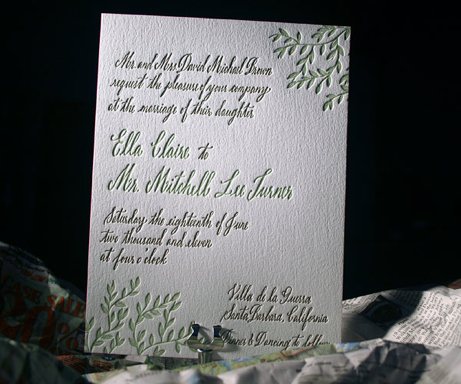 Mr. and Mrs. David Michael Brown
request the pleasure of your company
at the marriage of their daughter
Ella Claire to
Mr. Mitchell Lee Turner
Saturday the eighteenth of June
two thousand and eleven
at four o'clock
Villa de la Guerra
Santa Barbara, California
Dinner & Dancing to follow
SALE